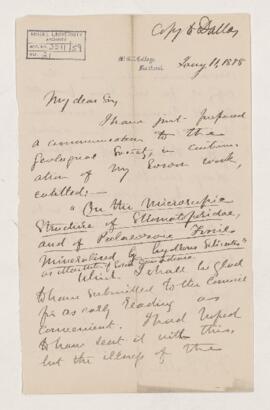 McGILL UNIVERSITY
ARCHIVES
ACC. NO. 2211/59
REF. 21
Copy to Dallas
McGill College
Montreal
Jany 11, 1878
My dear Sir
I have just prepared
a communication to the
Geological Society, in continu-
ation of my Eozoon work,
entitled:—
"On the Microscopic
Structure of Stromatoporidae,
and of Palaeozoic Fossils
Mineralized by hydrous Silicates"
as illustrative of Eozoon
Which I shall be glad
to have submitted to the Council
for as early reading as
convenient. I had hoped
to have sent it with this,
but the illness of the